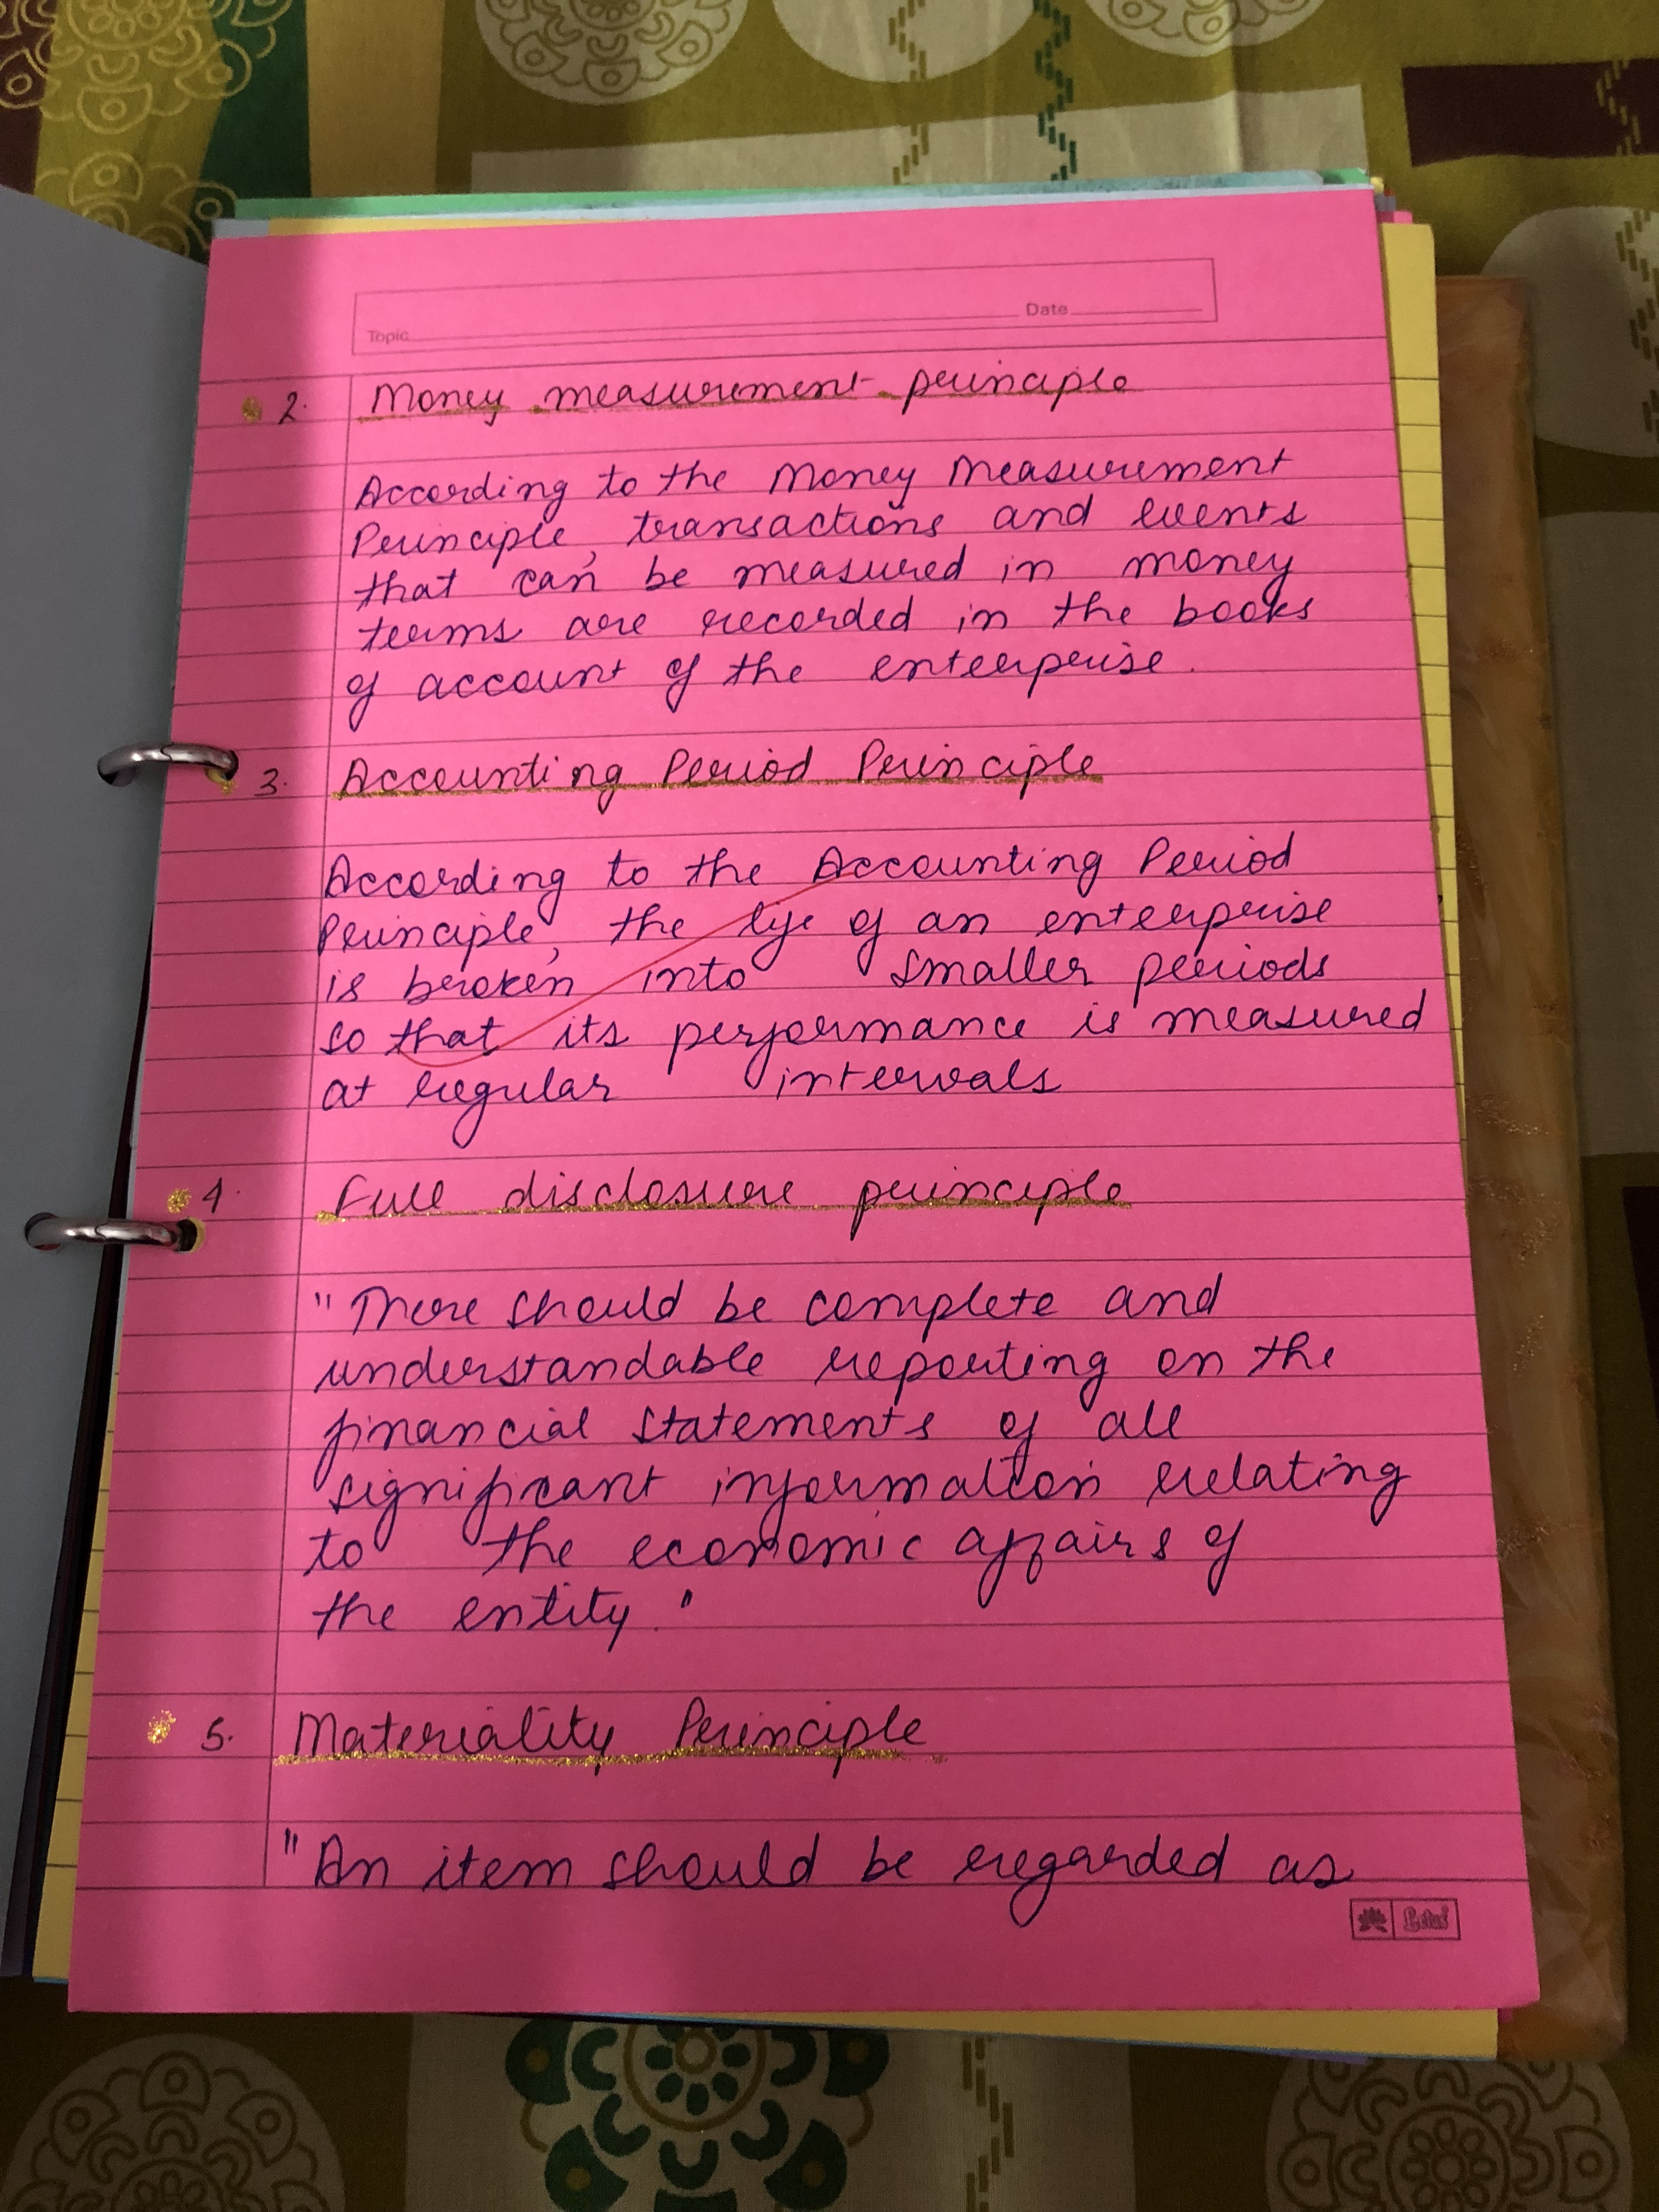 Topic Date
2. Money measurement principle
According to the Money Measurement
Principle, transactions and events
that can be measured in money
terms are recorded in the books
of account of the enterprise.
3. Accounting Period Principle
According to the Accounting Period
Principle, the life of an enterprise
is broken into smaller periods
so that its performance is measured
at regular intervals
4. Full disclosure principle
"There should be complete and
understandable reporting on the
financial statements of all
significant information relating
to the economic affairs of
the entity."
5. Materiality Principle
"An item should be regarded as
Lotus